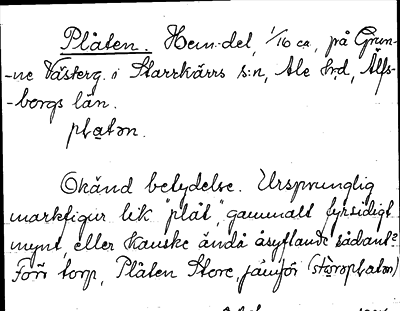 Plåten. Hem.del, 1/16 ca, på Grun-
-ne Västerg. i Starrkärrs s:n, Ale Hrd, Älfs-
-borgs län.
platən.
Okänd betydelse. Ursprunglig
markfigur lik "plåt", gammalt fyrsidigt
mynt, eller kanske ändå åsyftande sådant?
Förr torp, Plåten Store, jämför (störoplatən)